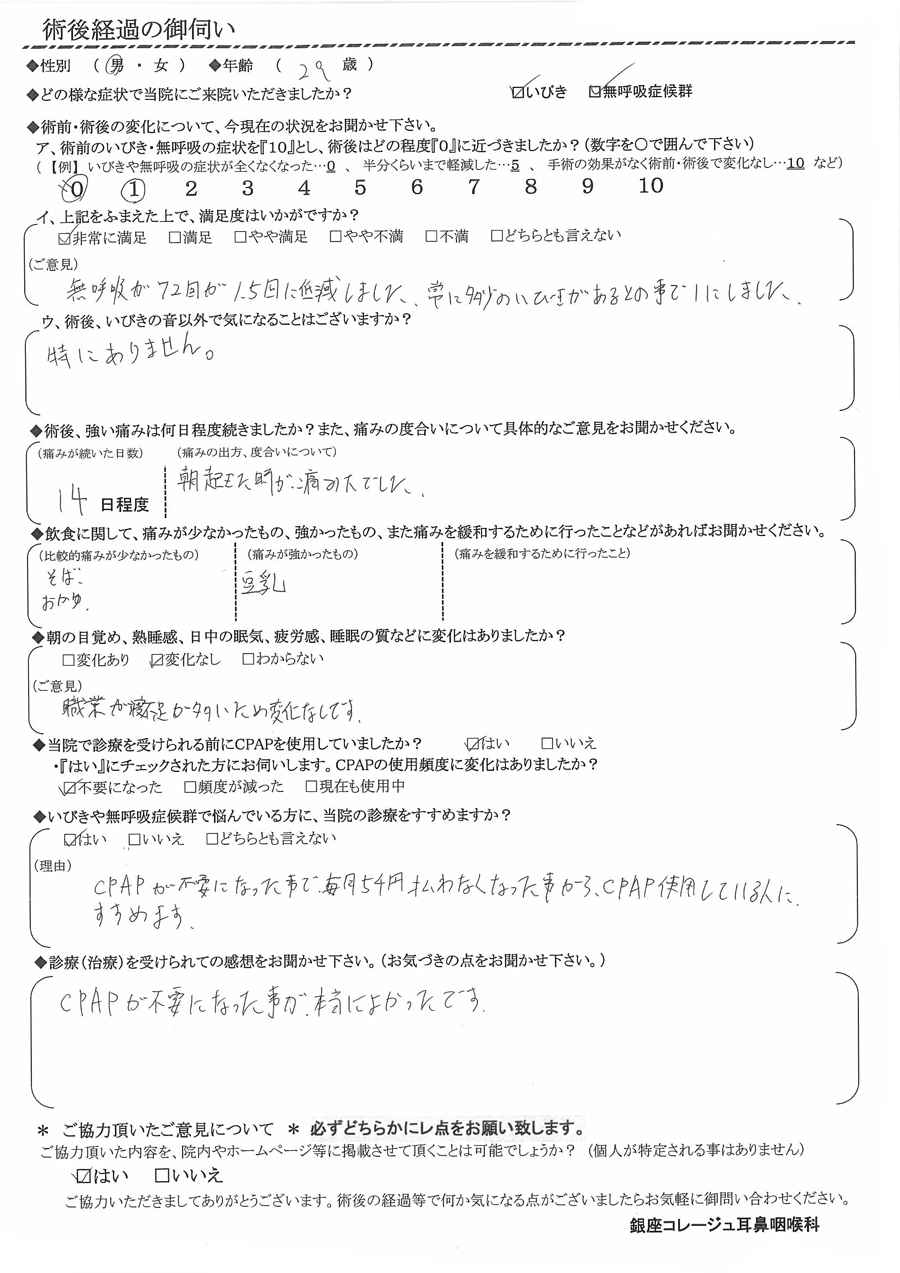 術後経過の御伺い
◆性別 （ 男 ・ 女 ） ◆年齢 （ 29 歳 ）
◆どの様な症状で当院にご来院いただきましたか？ ☑いびき ☑無呼吸症候群
◆術前・術後の変化について、今現在の状況をお聞かせ下さい。
ア、術前のいびき・無呼吸の症状を『10』とし、術後はどの程度『0』に近づきましたか？（数字を〇で囲んで下さい）
（【例】いびきや無呼吸の症状が全くなくなった…0 、 半分くらいまで軽減した…5 、 手術の効果がなく術前・術後で変化なし…10 など）
0 1 2 3 4 5 6 7 8 9 10
イ、上記をふまえた上で、満足度はいかがですか？
☑非常に満足 □満足 □やや満足 □やや不満 □不満 □どちらとも言えない
（ご意見）
無呼吸が72回が1.5回に低減しました、常に多少のいびきがあるとの事で1にしました、
ウ、術後、いびきの音以外で気になることはございますか？
特にありません。
◆術後、強い痛みは何日程度続きましたか？また、痛みの度合いについて具体的なご意見をお聞かせください。
（痛みが続いた日数） （痛みの出方、度合いについて）
朝起きた時が痛みたでした、
14 日程度
◆飲食に関して、痛みが少なかったもの、強かったもの、また痛みを緩和するために行ったことなどがあればお聞かせください。
（比較的痛みが少なかったもの） （痛みが強かったもの） （痛みを緩和するために行ったこと）
そば、 豆乳
おかゆ、
◆朝の目覚め、熟睡感、日中の眠気、疲労感、睡眠の質などに変化はありましたか？
□変化あり ☑変化なし □わからない
（ご意見）
職業が寝不足が多いため変化なしです、
◆当院で診療を受けられる前にCPAPを使用していましたか？ ☑はい □いいえ
・『はい』にチェックされた方にお伺いします。CPAPの使用頻度に変化はありましたか？
☑不要になった □頻度が減った □現在も使用中
◆いびきや無呼吸症候群で悩んでいる方に、当院の診療をすすめますか？
☑はい □いいえ □どちらとも言えない
（理由）
CPAPが不要になった事で、毎月5千円払わなくなった事から、CPAP使用している人に、
すすめます、
◆診療（治療）を受けられての感想をお聞かせ下さい。（お気づきの点をお聞かせ下さい。）
CPAPが不要になった事が、本当によかったです、
＊ ご協力頂いたご意見について ＊ 必ずどちらかにレ点をお願い致します。
ご協力頂いた内容を、院内やホームページ等に掲載させて頂くことは可能でしょうか？ （個人が特定される事はありません）
☑はい □いいえ
ご協力いただきましてありがとうございます。術後の経過等で何か気になる点がございましたらお気軽に御問い合わせください。
銀座コレージュ耳鼻咽喉科